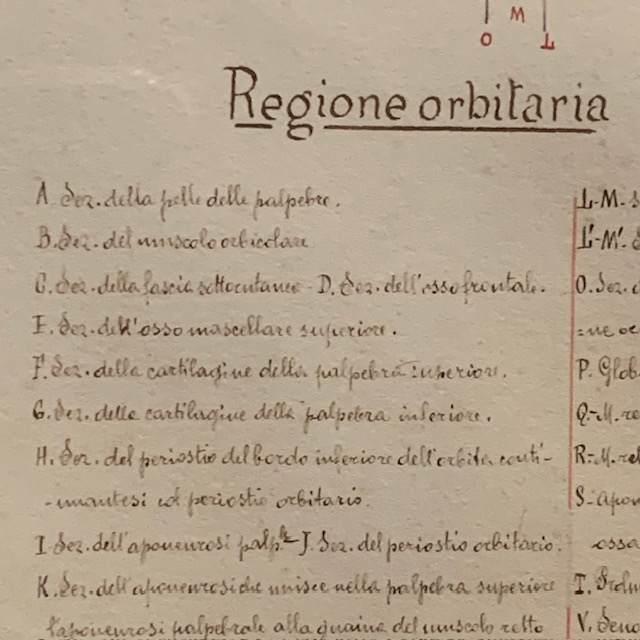 M
O L
Regione orbitaria
A. Sez. della pelle delle palpebre.
B. Sez. del muscolo orbicolare
C. Sez. della fascia sottocutanea - D. Sez. dell'osso frontale.
E. Sez. dell'osso mascellare superiore.
F. Sez. della cartilagine della palpebra superiore.
G. Sez. della cartilagine della palpebra inferiore.
H. Sez. del periostio del bordo inferiore dell'orbita conti-
-nuantesi col periostio orbitario.
I. Sez. dell'aponeurosi palp.le J. Sez. del periostio orbitario.
K. Sez. dell'aponeurosi che unisce nella palpebra superiore
l'aponeurosi palpebrale alla guaina del muscolo retto
L-M- s
L'-M'.
O. Sez. d
=ne or
P. Glob
Q-M. re
R-M. ret
S- Apon
ossa
T.
V.